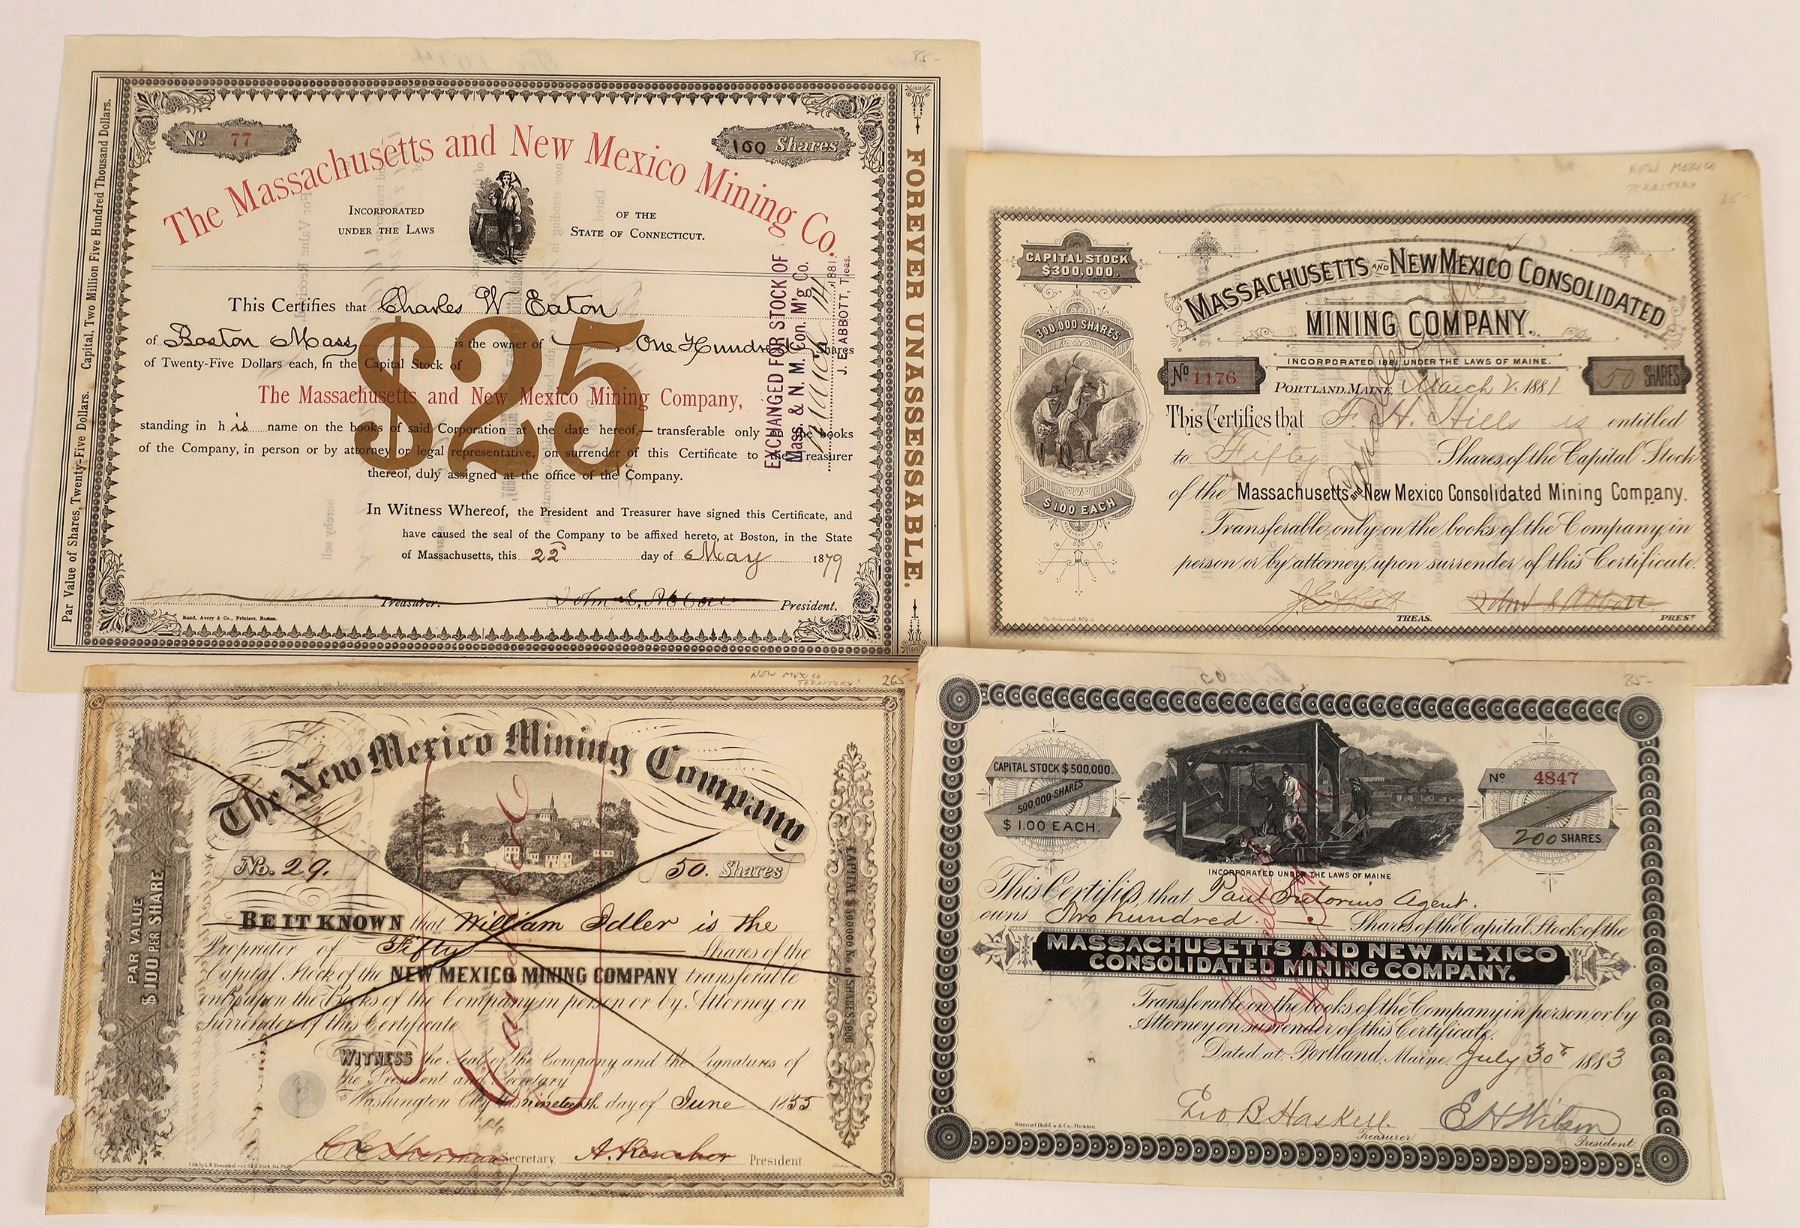 85-
No. 77
100 Shares
The Massachusetts and New Mexico Mining Co.
INCORPORATED UNDER THE LAWS
OF THE STATE OF CONNECTICUT.
This Certifies that Charles W. Eaton
of Boston Mass is the owner of One Hundred Shares
of Twenty-Five Dollars each, in the Capital Stock of
The Massachusetts and New Mexico Mining Company,
standing in his name on the books of said Corporation at the date hereof,—transferable only on the books
of the Company, in person or by attorney or legal representative, on surrender of this Certificate to the Treasurer
thereof, duly assigned at the office of the Company.
$25
In Witness Whereof, the President and Treasurer have signed this Certificate, and
have caused the seal of the Company to be affixed hereto, at Boston, in the State
of Massachusetts, this 22d day of May 1879
Treasurer. John S. Abbott President.
Rand, Avery & Co., Printers, Boston.
Par Value of Shares, Twenty-Five Dollars. Capital, Two Million Five Hundred Thousand Dollars.
FOREVER UNASSESSABLE.
EXCHANGED FOR STOCK OF
Mass. & N. M. Con. M'g Co.
March 14 1881.
J. ABBOTT, Treas.
NEW MEXICO
TERRITORY
CAPITAL STOCK
$300,000.
300,000 SHARES
$1.00 EACH
MASSACHUSETTS AND NEW MEXICO CONSOLIDATED
MINING COMPANY.
INCORPORATED 1881 UNDER THE LAWS OF MAINE.
No 1176
PORTLAND, MAINE, March 2, 1881
50 SHARES
This Certifies that F. H. Hills is entitled
to Fifty Shares of the Capital Stock
of the Massachusetts and New Mexico Consolidated Mining Company.
Transferable only on the books of the Company, in
person or by attorney, upon surrender of this Certificate.
Cancelled
TREAS. John S. Abbott PREST
NEW MEXICO
TERRITORY
265-
The New Mexico Mining Company
No. 29.
50. Shares
BE IT KNOWN that William Idler is the
Proprietor of Fifty Shares of the
Capital Stock of the NEW MEXICO MINING COMPANY transferable
only upon the Books of the Company in person or by Attorney on
Surrender of this Certificate
WITNESS the Seal of the Company and the Signatures of
the President and Secretary
Washington City this nineteenth day of June 1855
Secretary President
PAR VALUE
$100 PER SHARE
CAPITAL $500000 No. of SHARES 5000
Cancelled
85-
CAPITAL STOCK $500,000.
500,000 SHARES
$1.00 EACH.
No 4847
200 SHARES
INCORPORATED UNDER THE LAWS OF MAINE
This Certifies that Paul Pretorius Agent.
owns Two hundred Shares of the Capital Stock of the
MASSACHUSETTS AND NEW MEXICO
CONSOLIDATED MINING COMPANY.
Transferable on the books of the Company in person or by
Attorney on surrender of this Certificate.
Dated at Portland, Maine, July 30th 1883
Cancelled
Geo B. Haskell Treasurer.
E H Wilson President.
Samuel Hobbs & Co. Boston